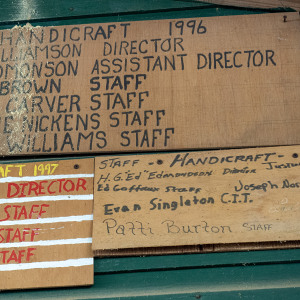 HANDICRAFT 1996
LLIAMSON DIRECTOR
DMONSON ASSISTANT DIRECTOR
BROWN STAFF
CARVER STAFF
E NICKENS STAFF
WILLIAMS STAFF
AFT 1997
DIRECTOR
STAFF
STAFF
STAFF
STAFF - HANDICRAFT -
H.G. "Ed" EDMONDSON Director
Ed Coffman STAFF Joseph
Evan Singleton C.I.T.
Patti Burton STAFF